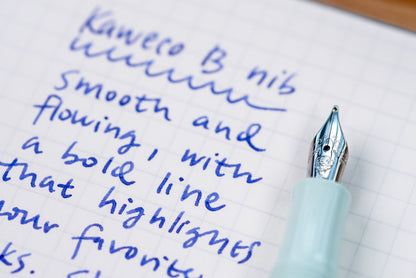 Kaweco B nib
Smooth and
flowing, with
a bold line
that highlights
your favorite